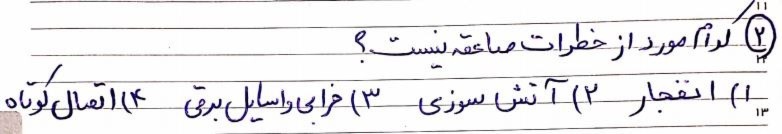 ۱۱
۲) کدام مورد از خطرات صاعقه نیست؟
۱۲
۱) انفجار ۲) آتش سوزی ۳) خرابی وسایل برقی ۴) اتصال کوتاه
۱۳